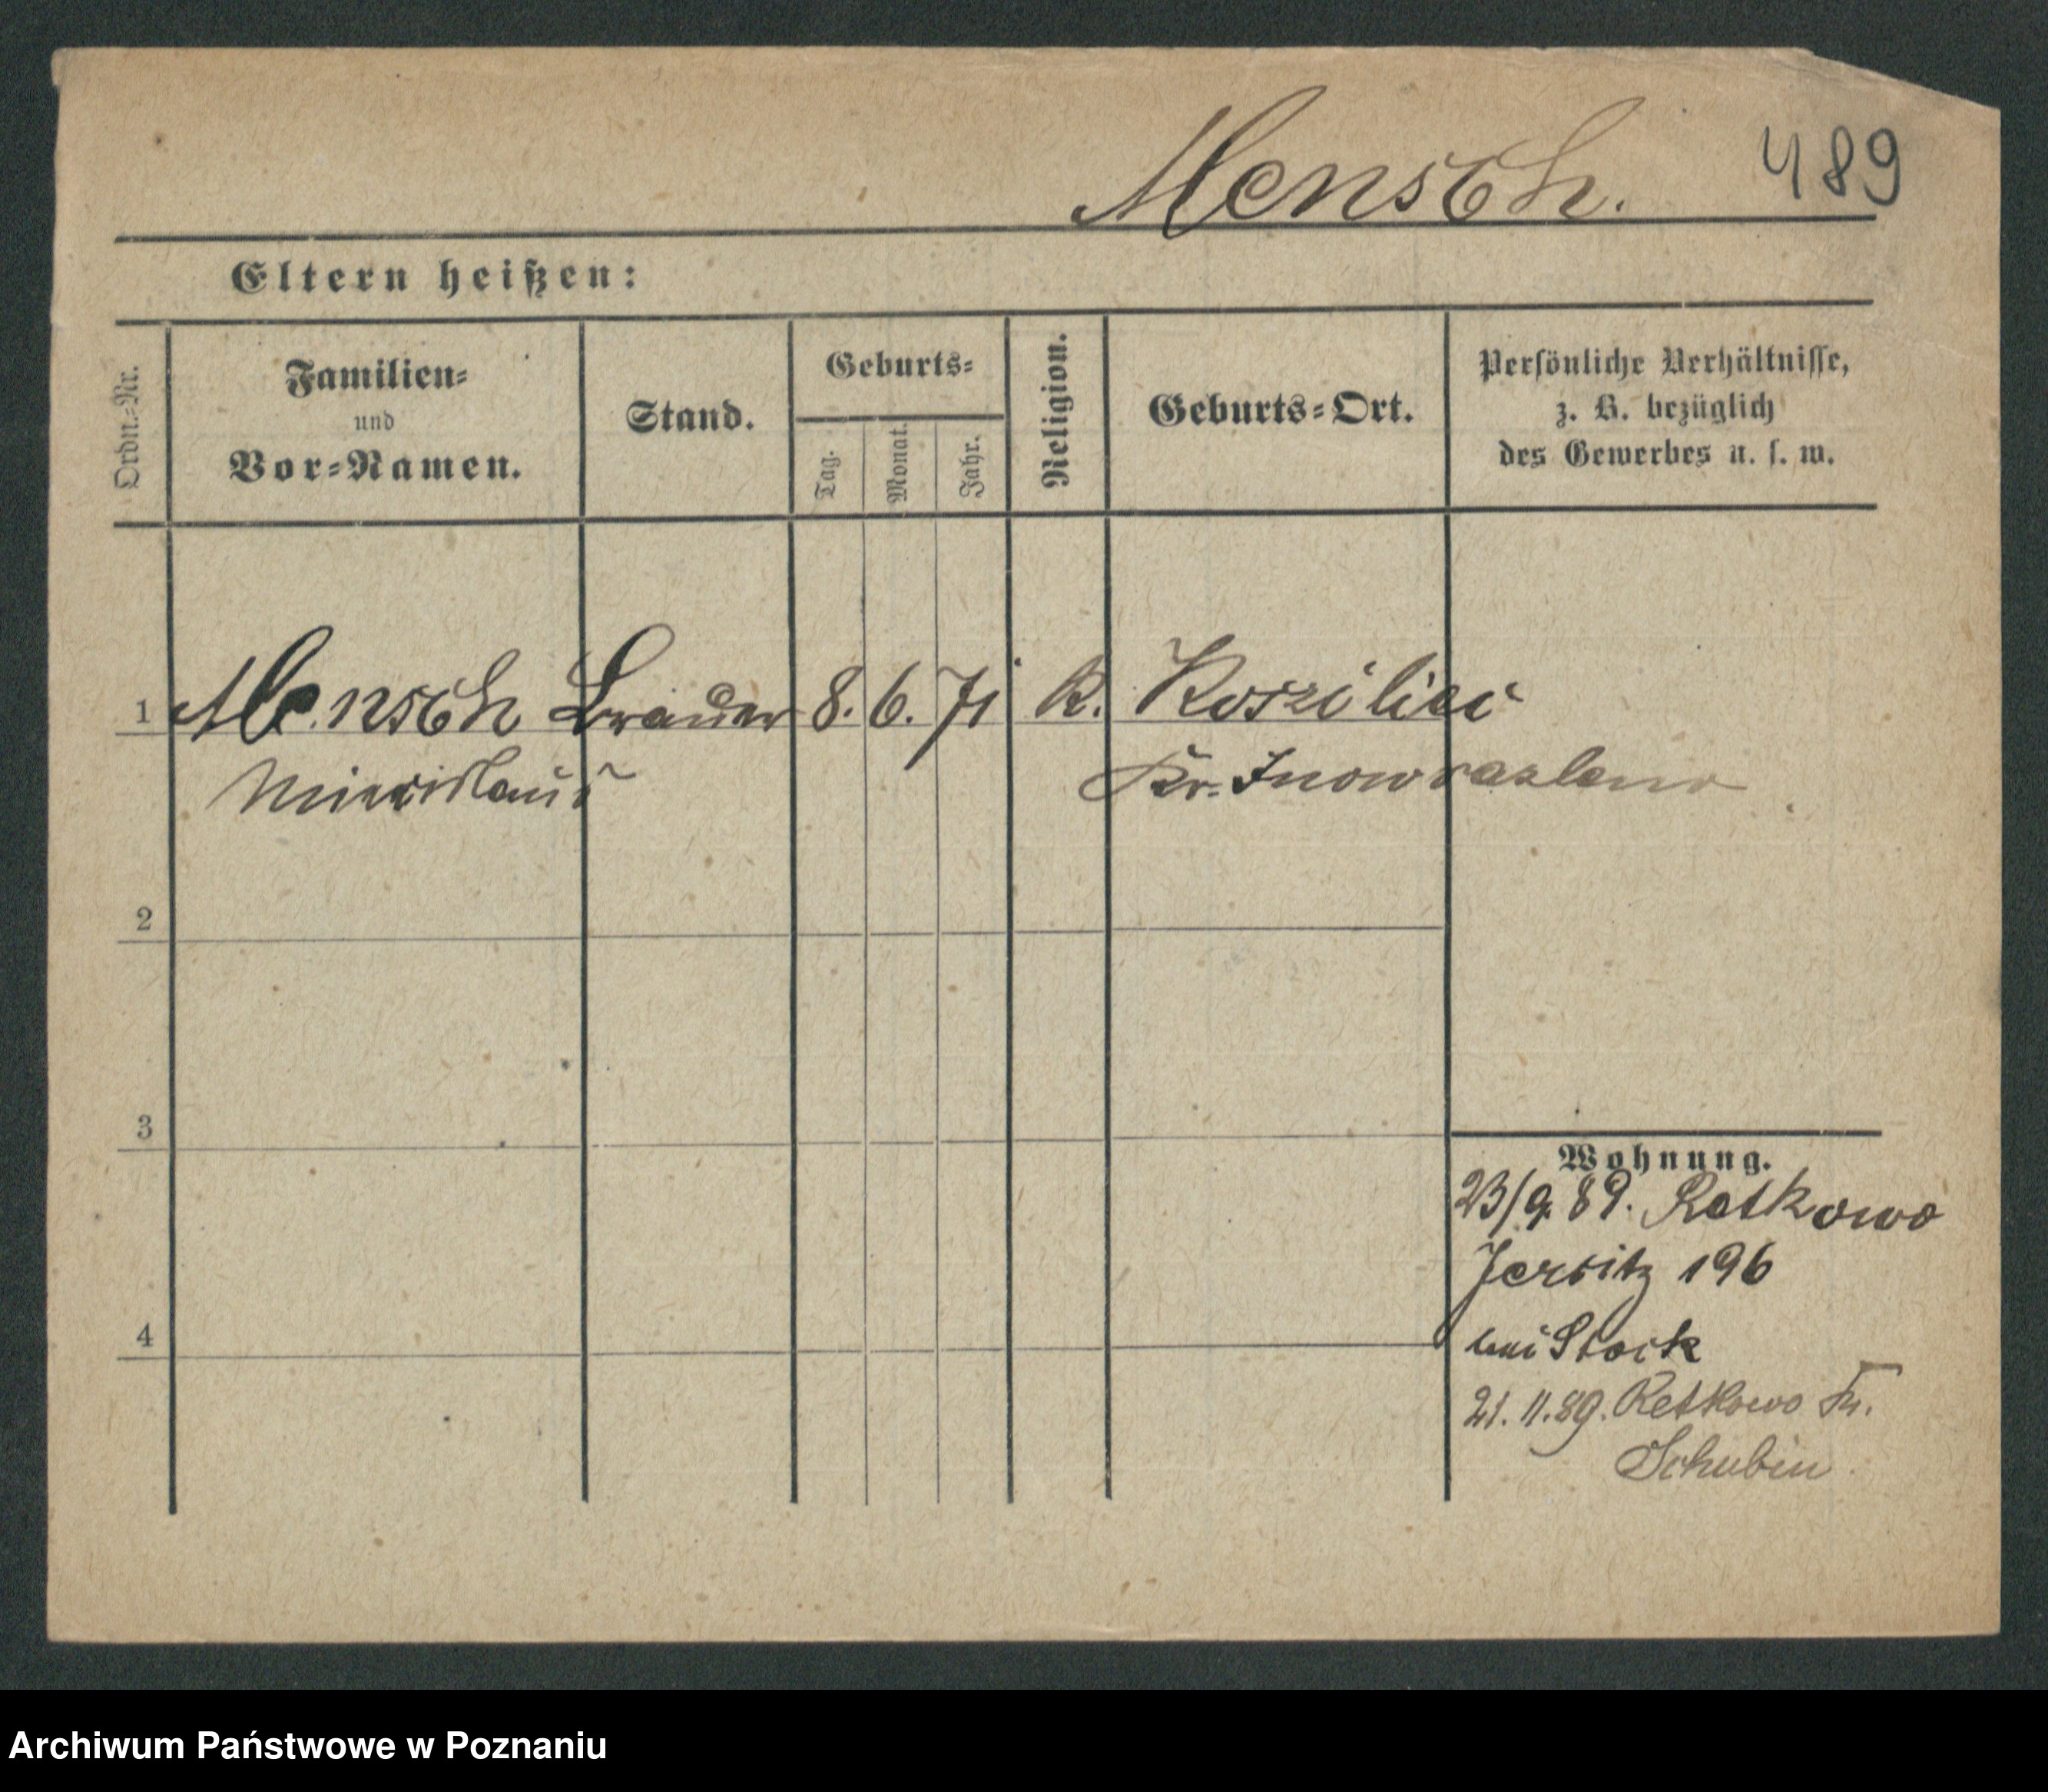 Mensch.
489
Eltern heißen:
Ordn.-Nr.
Familien-
und
Vor-Namen.
Stand.
Geburts-
Tag.
Monat.
Jahr.
Religion.
Geburts-Ort.
Persönliche Verhältnisse,
z. B. bezüglich
des Gewerbes u. s. w.
1 Mensch Brauer 8. 6. 71 K.
Kr. Inowrazlaw
2
3
4
Wohnung.
23/9. 89. Retkowo
Jersitz 196
bei Stock
21. 11. 89. Retkowo Kr.
Schubin
Archiwum Państwowe w Poznaniu